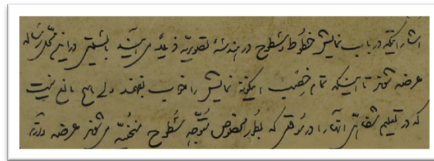 اشاراتیکه در باب نمایش خطوط و سطوح در هندسهٔ تصویریه ذیلاً می‌آیند بایستی در اینجا رساله
عرضه شوند تا اینکه تمام خصب اینگونه نمایش را خوب بفهمند ولی هیچ مانع نیست
که در تعلیم شفاهی آنها را در موقعی که بطور مخصوص متوجه سطوح منحنیه می‌شوند عرضه دارند